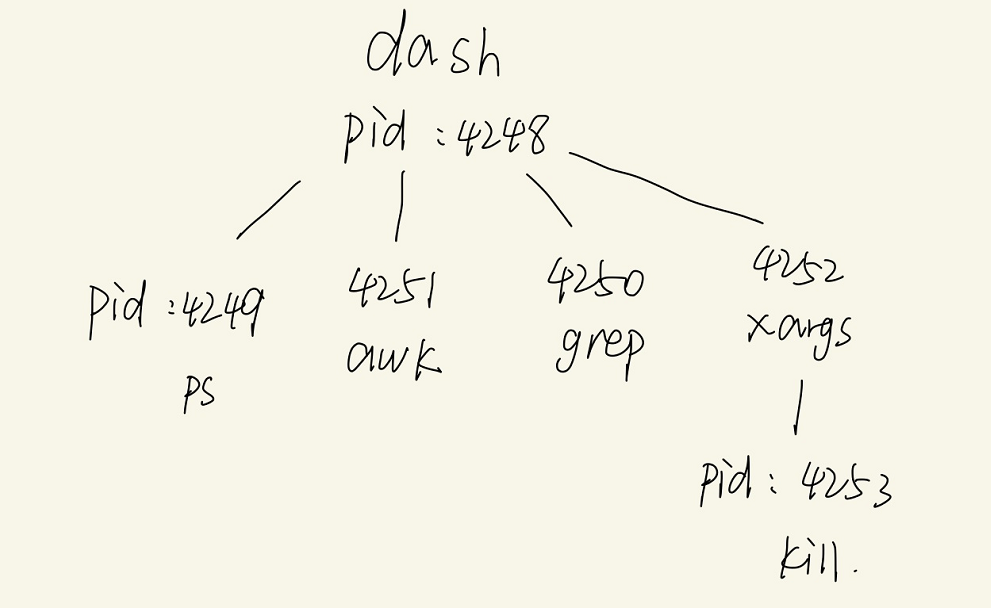 dash
pid : 4248
pid : 4249
ps
4251
awk
4250
grep
4252
xargs
pid : 4253
kill.